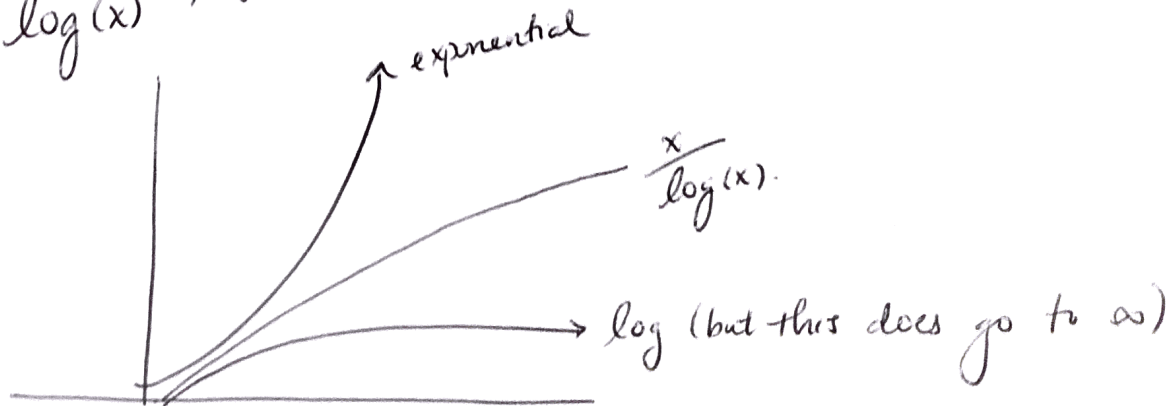 log(x)
exponential
x
log(x).
log (but this does go to ∞)